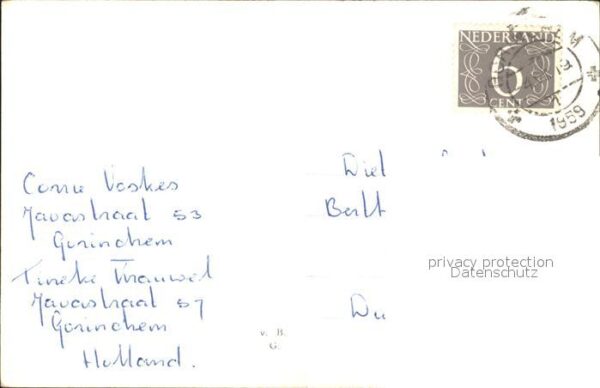 NEDERLAND
6
CENT
1959
Corrie Voskes
Javastraat 53
Gorinchem
Tineke
Javastraat 57
Gorinchem
Holland.
v. B.
G.
Diet
Du
privacy protection
Datenschutz